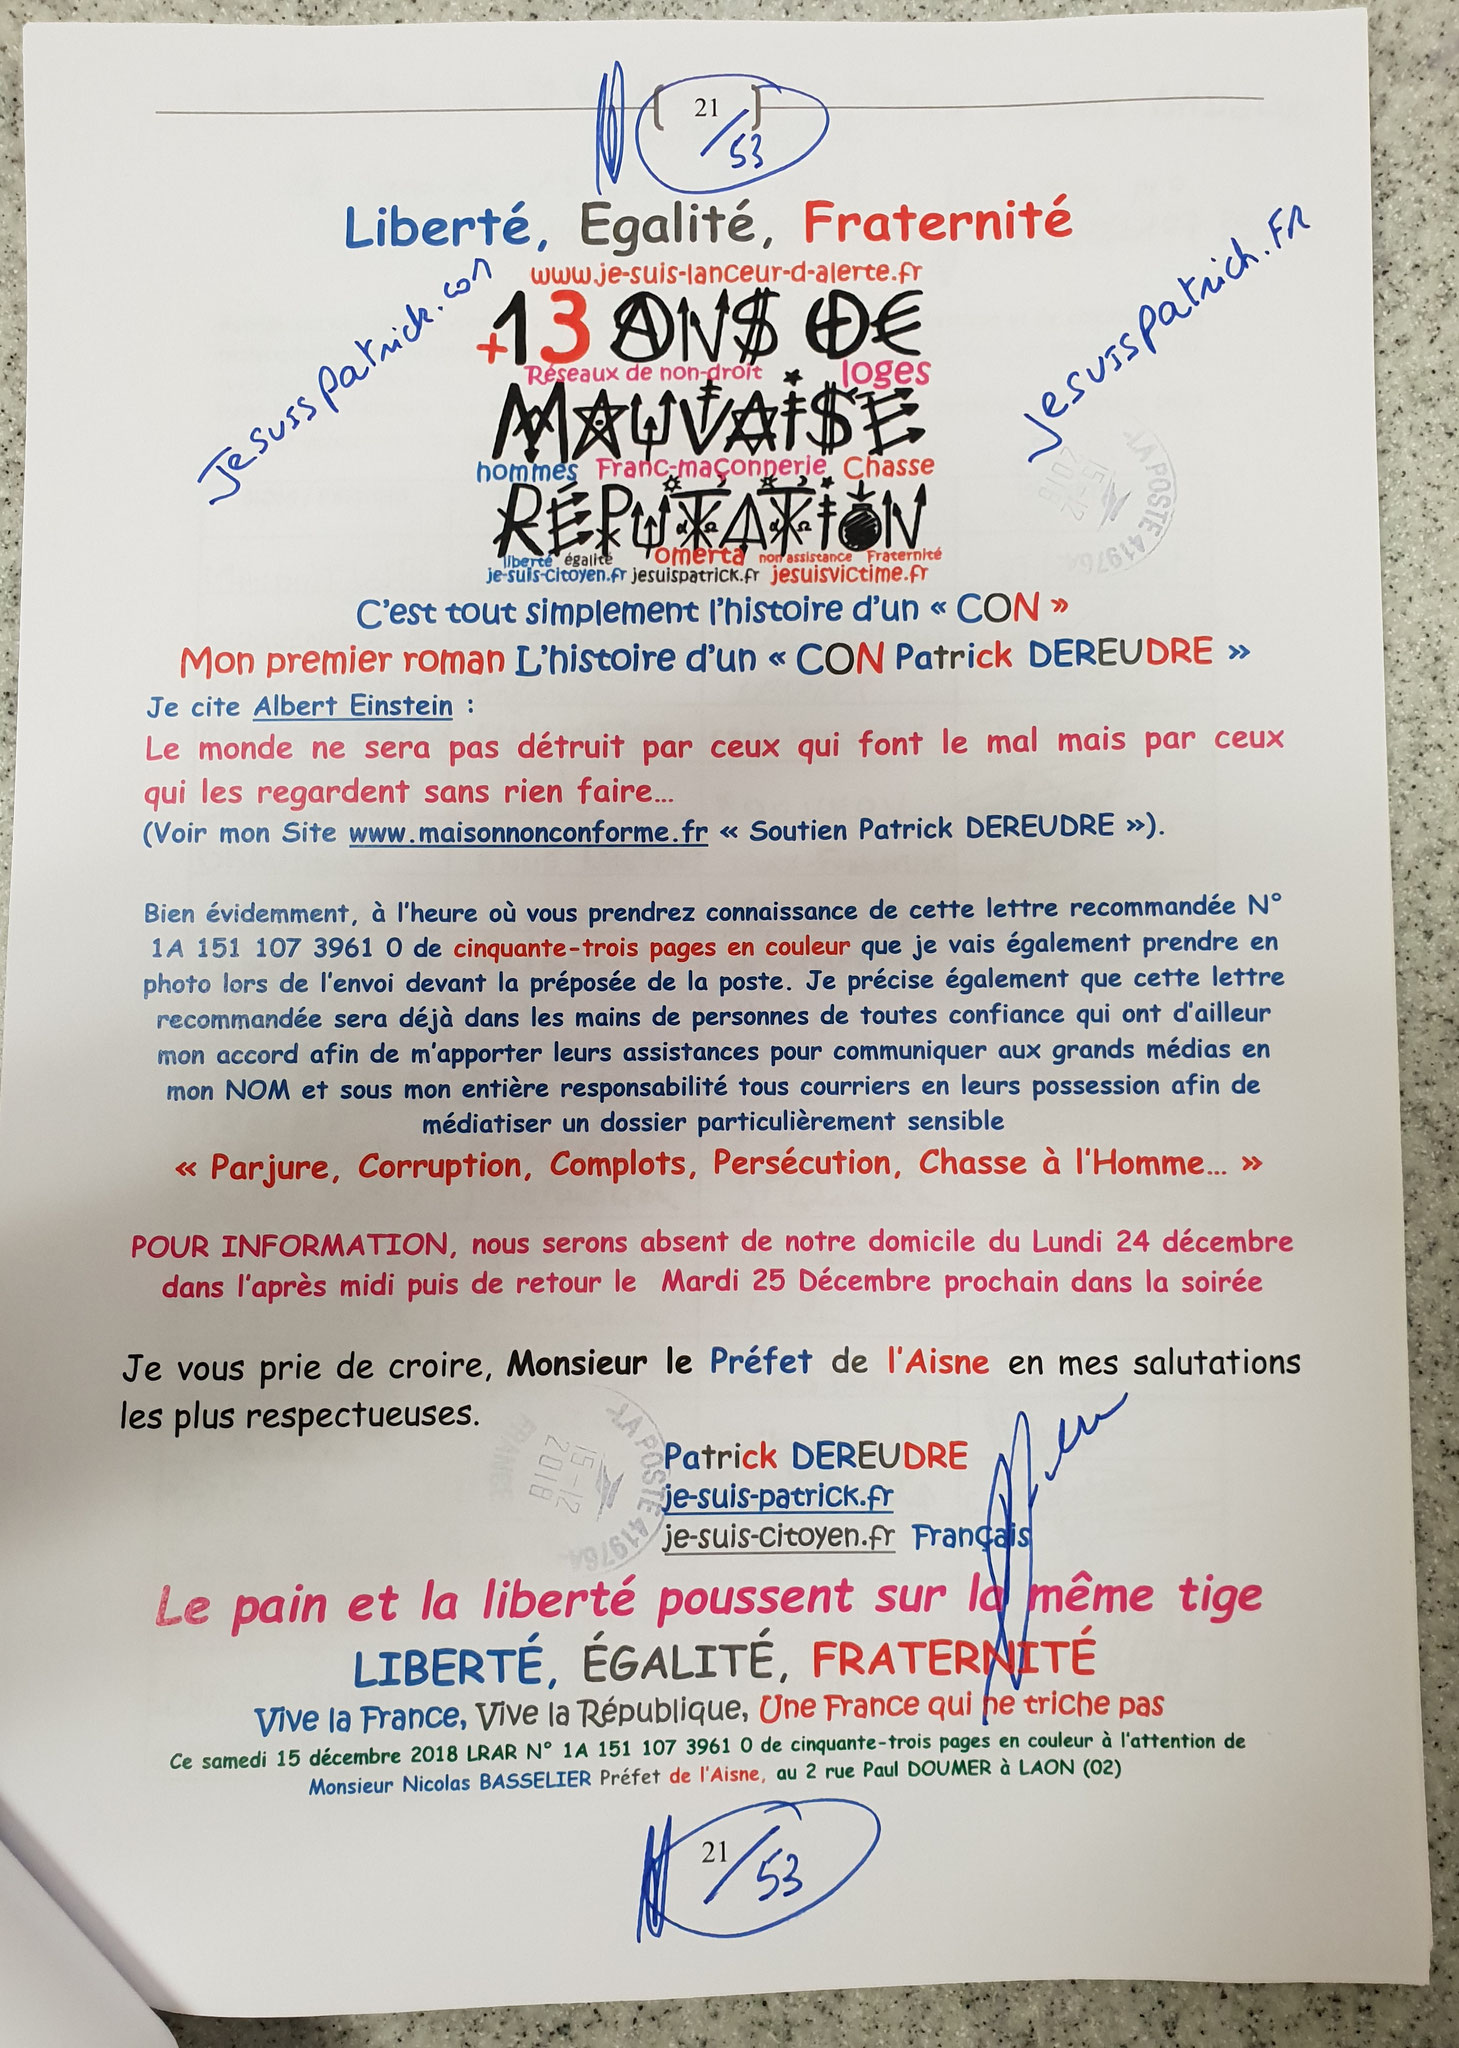 21
/53
Liberté, Egalité, Fraternité
www.je-suis-lanceur-d-alerte.fr
Jesuispatrick.con
jesuispatrich.FR
+13 ANS DE
Réseaux de non-droit loges
MAUVAISE
hommes Franc-maçonnerie Chasse
RÉPUTATION
liberté égalité omerta non assistance Fraternité
je-suis-citoyen.fr jesuispatrick.fr jesuisvictime.fr
LA POSTE 41976A
15-12
2018
C'est tout simplement l'histoire d'un « CON »
Mon premier roman L'histoire d'un « CON Patrick DEREUDRE »
Je cite Albert Einstein :
Le monde ne sera pas détruit par ceux qui font le mal mais par ceux
qui les regardent sans rien faire...
(Voir mon Site www.maisonnonconforme.fr « Soutien Patrick DEREUDRE »).
Bien évidemment, à l'heure où vous prendrez connaissance de cette lettre recommandée N°
1A 151 107 3961 0 de cinquante-trois pages en couleur que je vais également prendre en
photo lors de l'envoi devant la préposée de la poste. Je précise également que cette lettre
recommandée sera déjà dans les mains de personnes de toutes confiance qui ont d'ailleur
mon accord afin de m'apporter leurs assistances pour communiquer aux grands médias en
mon NOM et sous mon entière responsabilité tous courriers en leurs possession afin de
médiatiser un dossier particulièrement sensible
« Parjure, Corruption, Complots, Persécution, Chasse à l'Homme... »
POUR INFORMATION, nous serons absent de notre domicile du Lundi 24 décembre
dans l'après midi puis de retour le Mardi 25 Décembre prochain dans la soirée
Je vous prie de croire, Monsieur le Préfet de l'Aisne en mes salutations
les plus respectueuses.
LA POSTE 41976A
15-12
2018
FRANCE
Patrick DEREUDRE
je-suis-patrick.fr
je-suis-citoyen.fr Français
Le pain et la liberté poussent sur la même tige
LIBERTÉ, ÉGALITÉ, FRATERNITÉ
Vive la France, Vive la République, Une France qui ne triche pas
Ce samedi 15 décembre 2018 LRAR N° 1A 151 107 3961 0 de cinquante-trois pages en couleur à l'attention de
Monsieur Nicolas BASSELIER Préfet de l'Aisne, au 2 rue Paul DOUMER à LAON (02)
21
/53